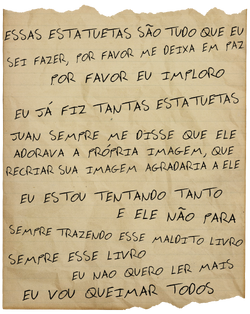 ESSAS ESTATUETAS SÃO TUDO QUE EU
SEI FAZER, POR FAVOR ME DEIXA EM PAZ
POR FAVOR EU IMPLORO
EU JÁ FIZ TANTAS ESTATUETAS
JUAN SEMPRE ME DISSE QUE ELE
ADORAVA A PRÓPRIA IMAGEM, QUE
RECRIAR SUA IMAGEM AGRADARIA A ELE
EU ESTOU TENTANDO TANTO
E ELE NÃO PARA
SEMPRE TRAZENDO ESSE MALDITO LIVRO
SEMPRE ESSE LIVRO
EU NAO QUERO LER MAIS
EU VOU QUEIMAR TODOS